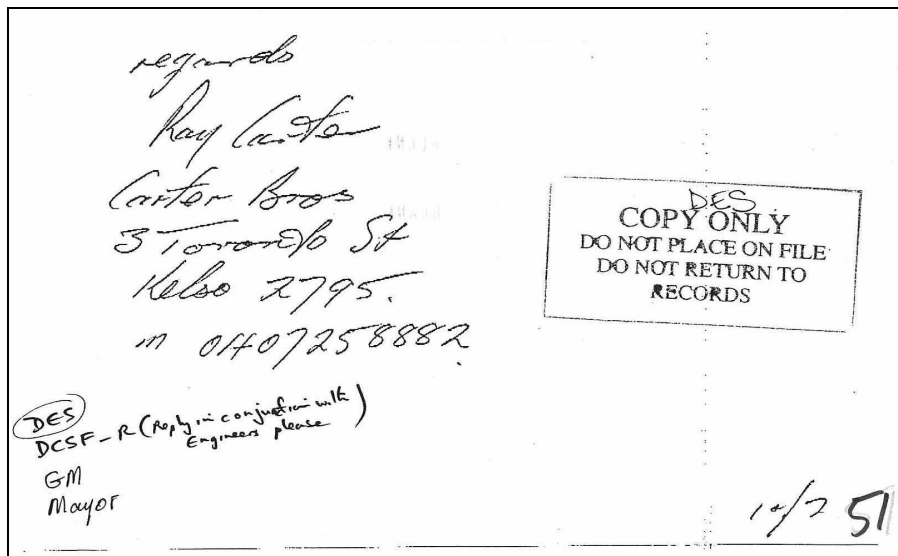 regards
Ray Carter
Carter Bros
3 Toronto St
Kelso 2795.
m 0407258882
DES
COPY ONLY
DO NOT PLACE ON FILE
DO NOT RETURN TO
RECORDS
DES
DCSF-R (Reply in conjunction with
Engineers please)
GM
Mayor
51